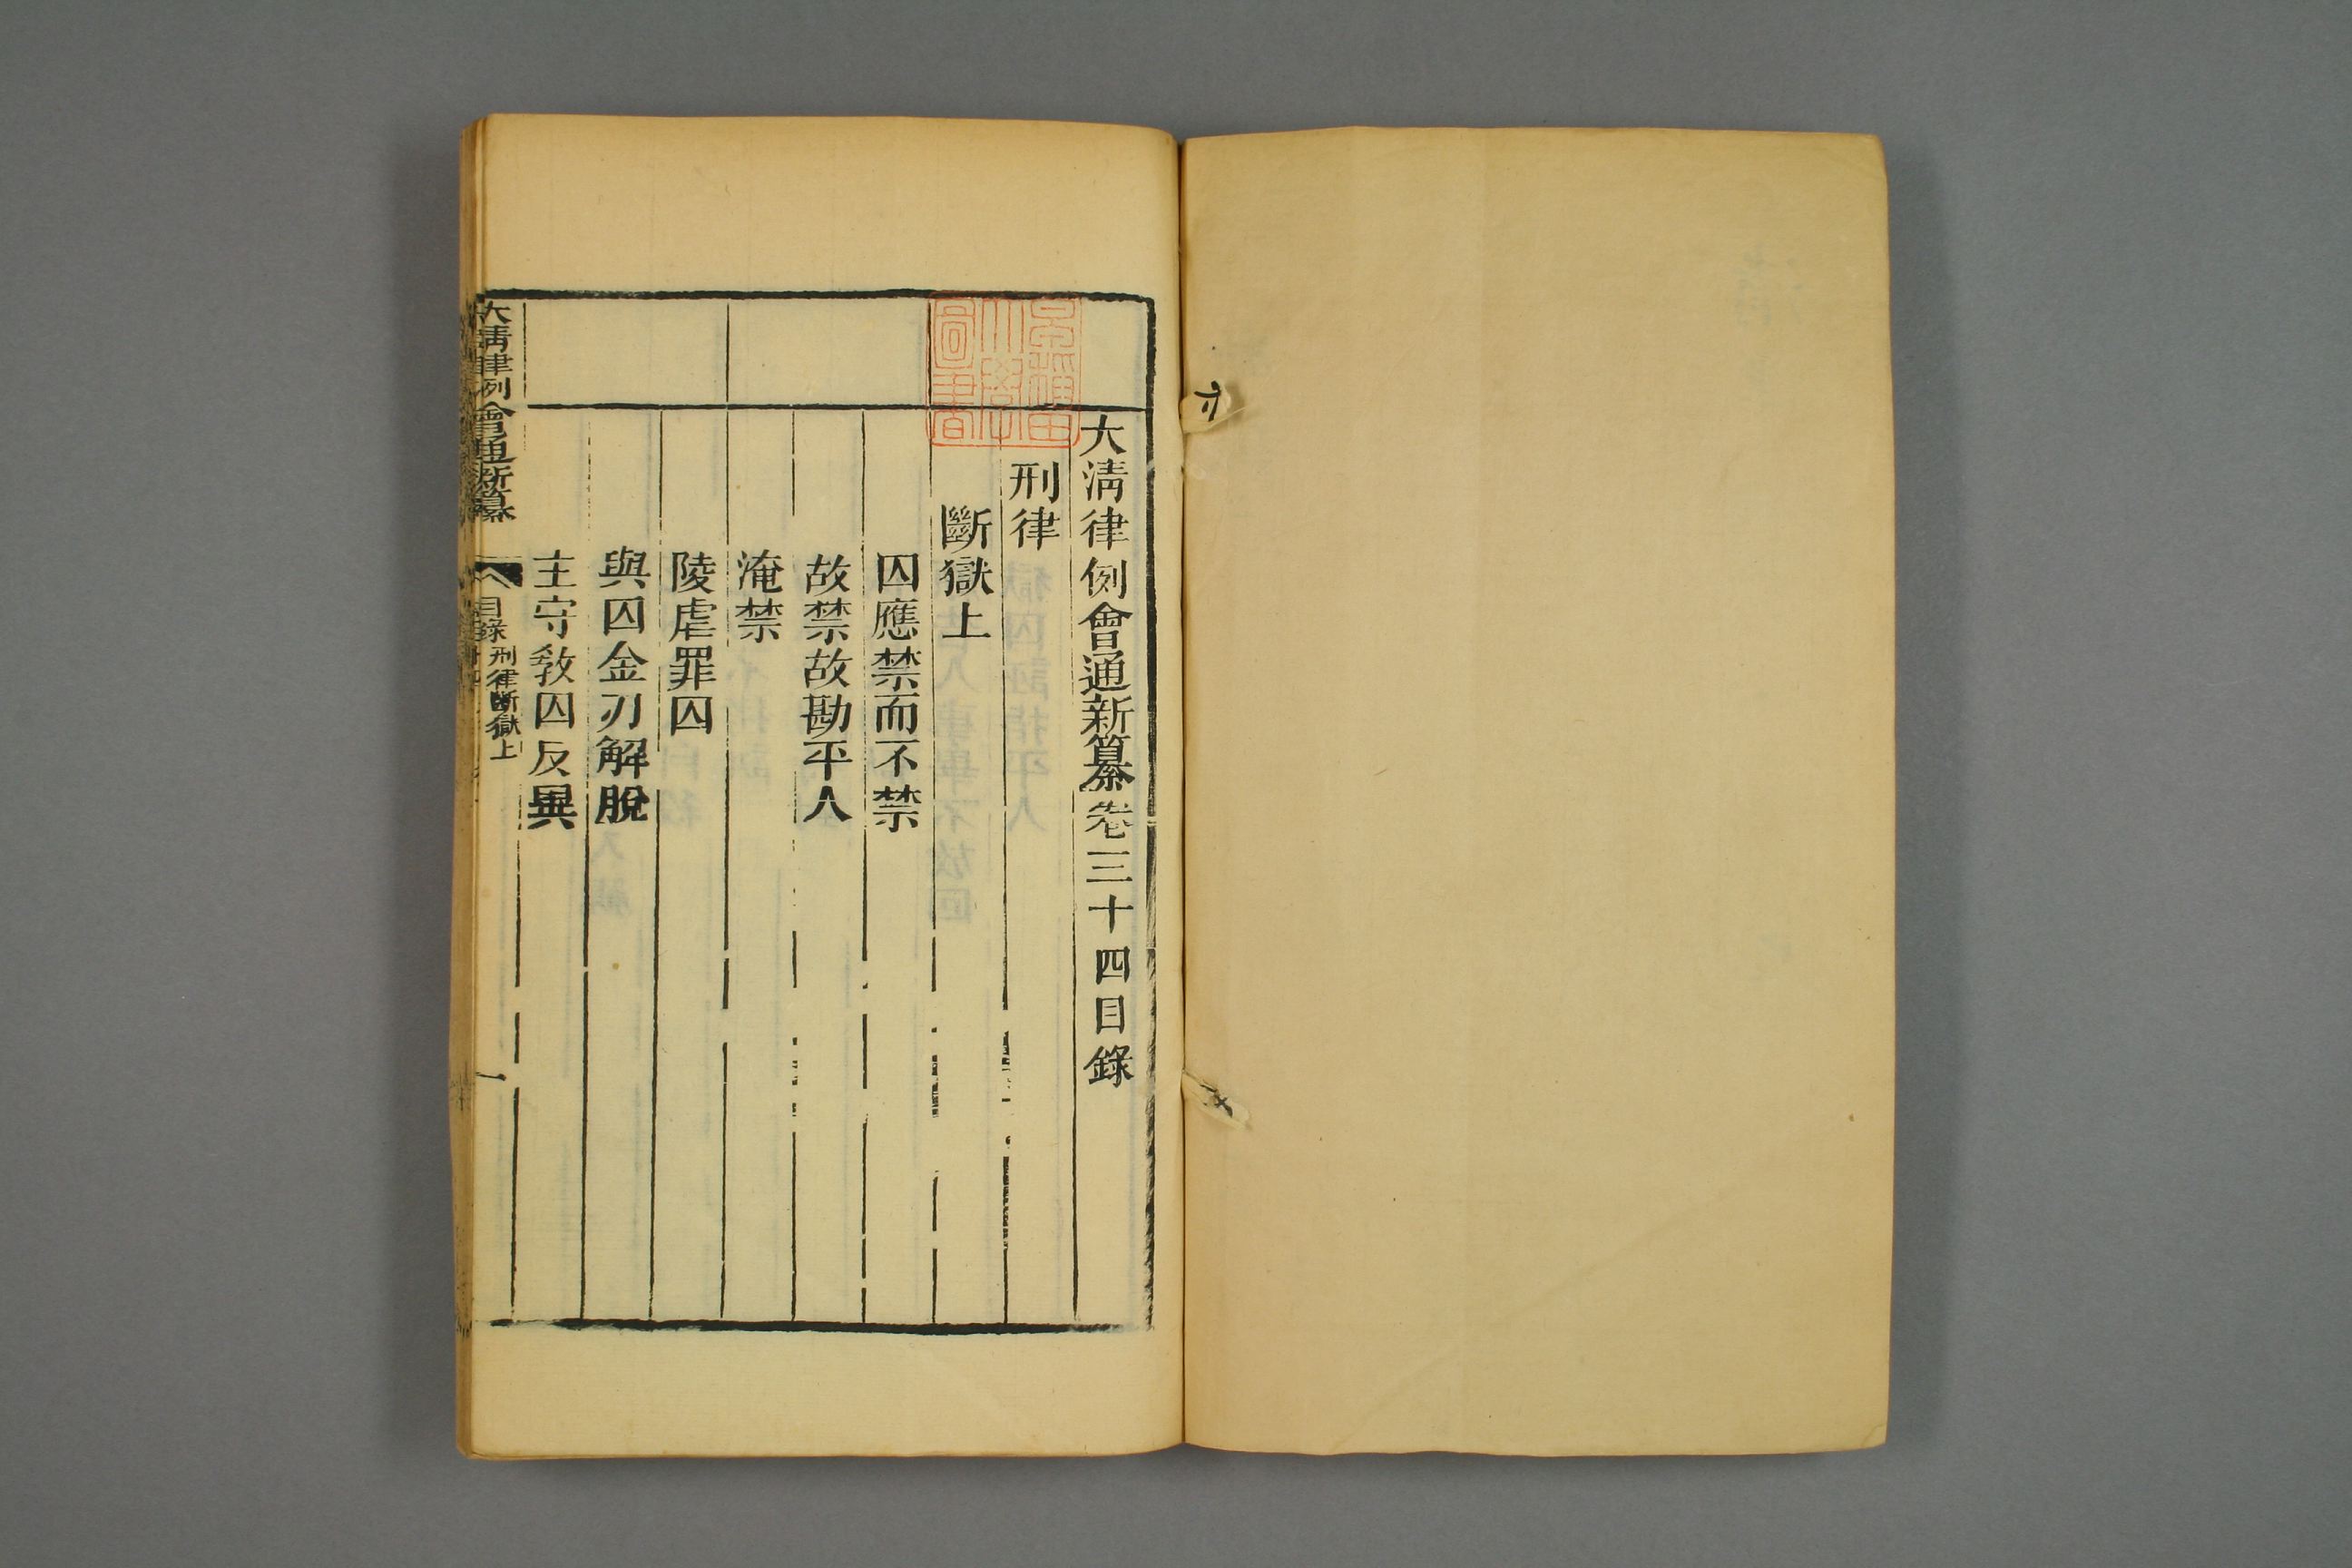 大淸律例會通新纂卷三十四目錄
刑律
斷獄上
囚應禁而不禁
故禁故勘平人
淹禁
陵虐罪囚
與囚金刃解脫
主守敎囚反異
大淸律例會通新纂
目錄 刑律斷獄上
一
早稻田大學圖書